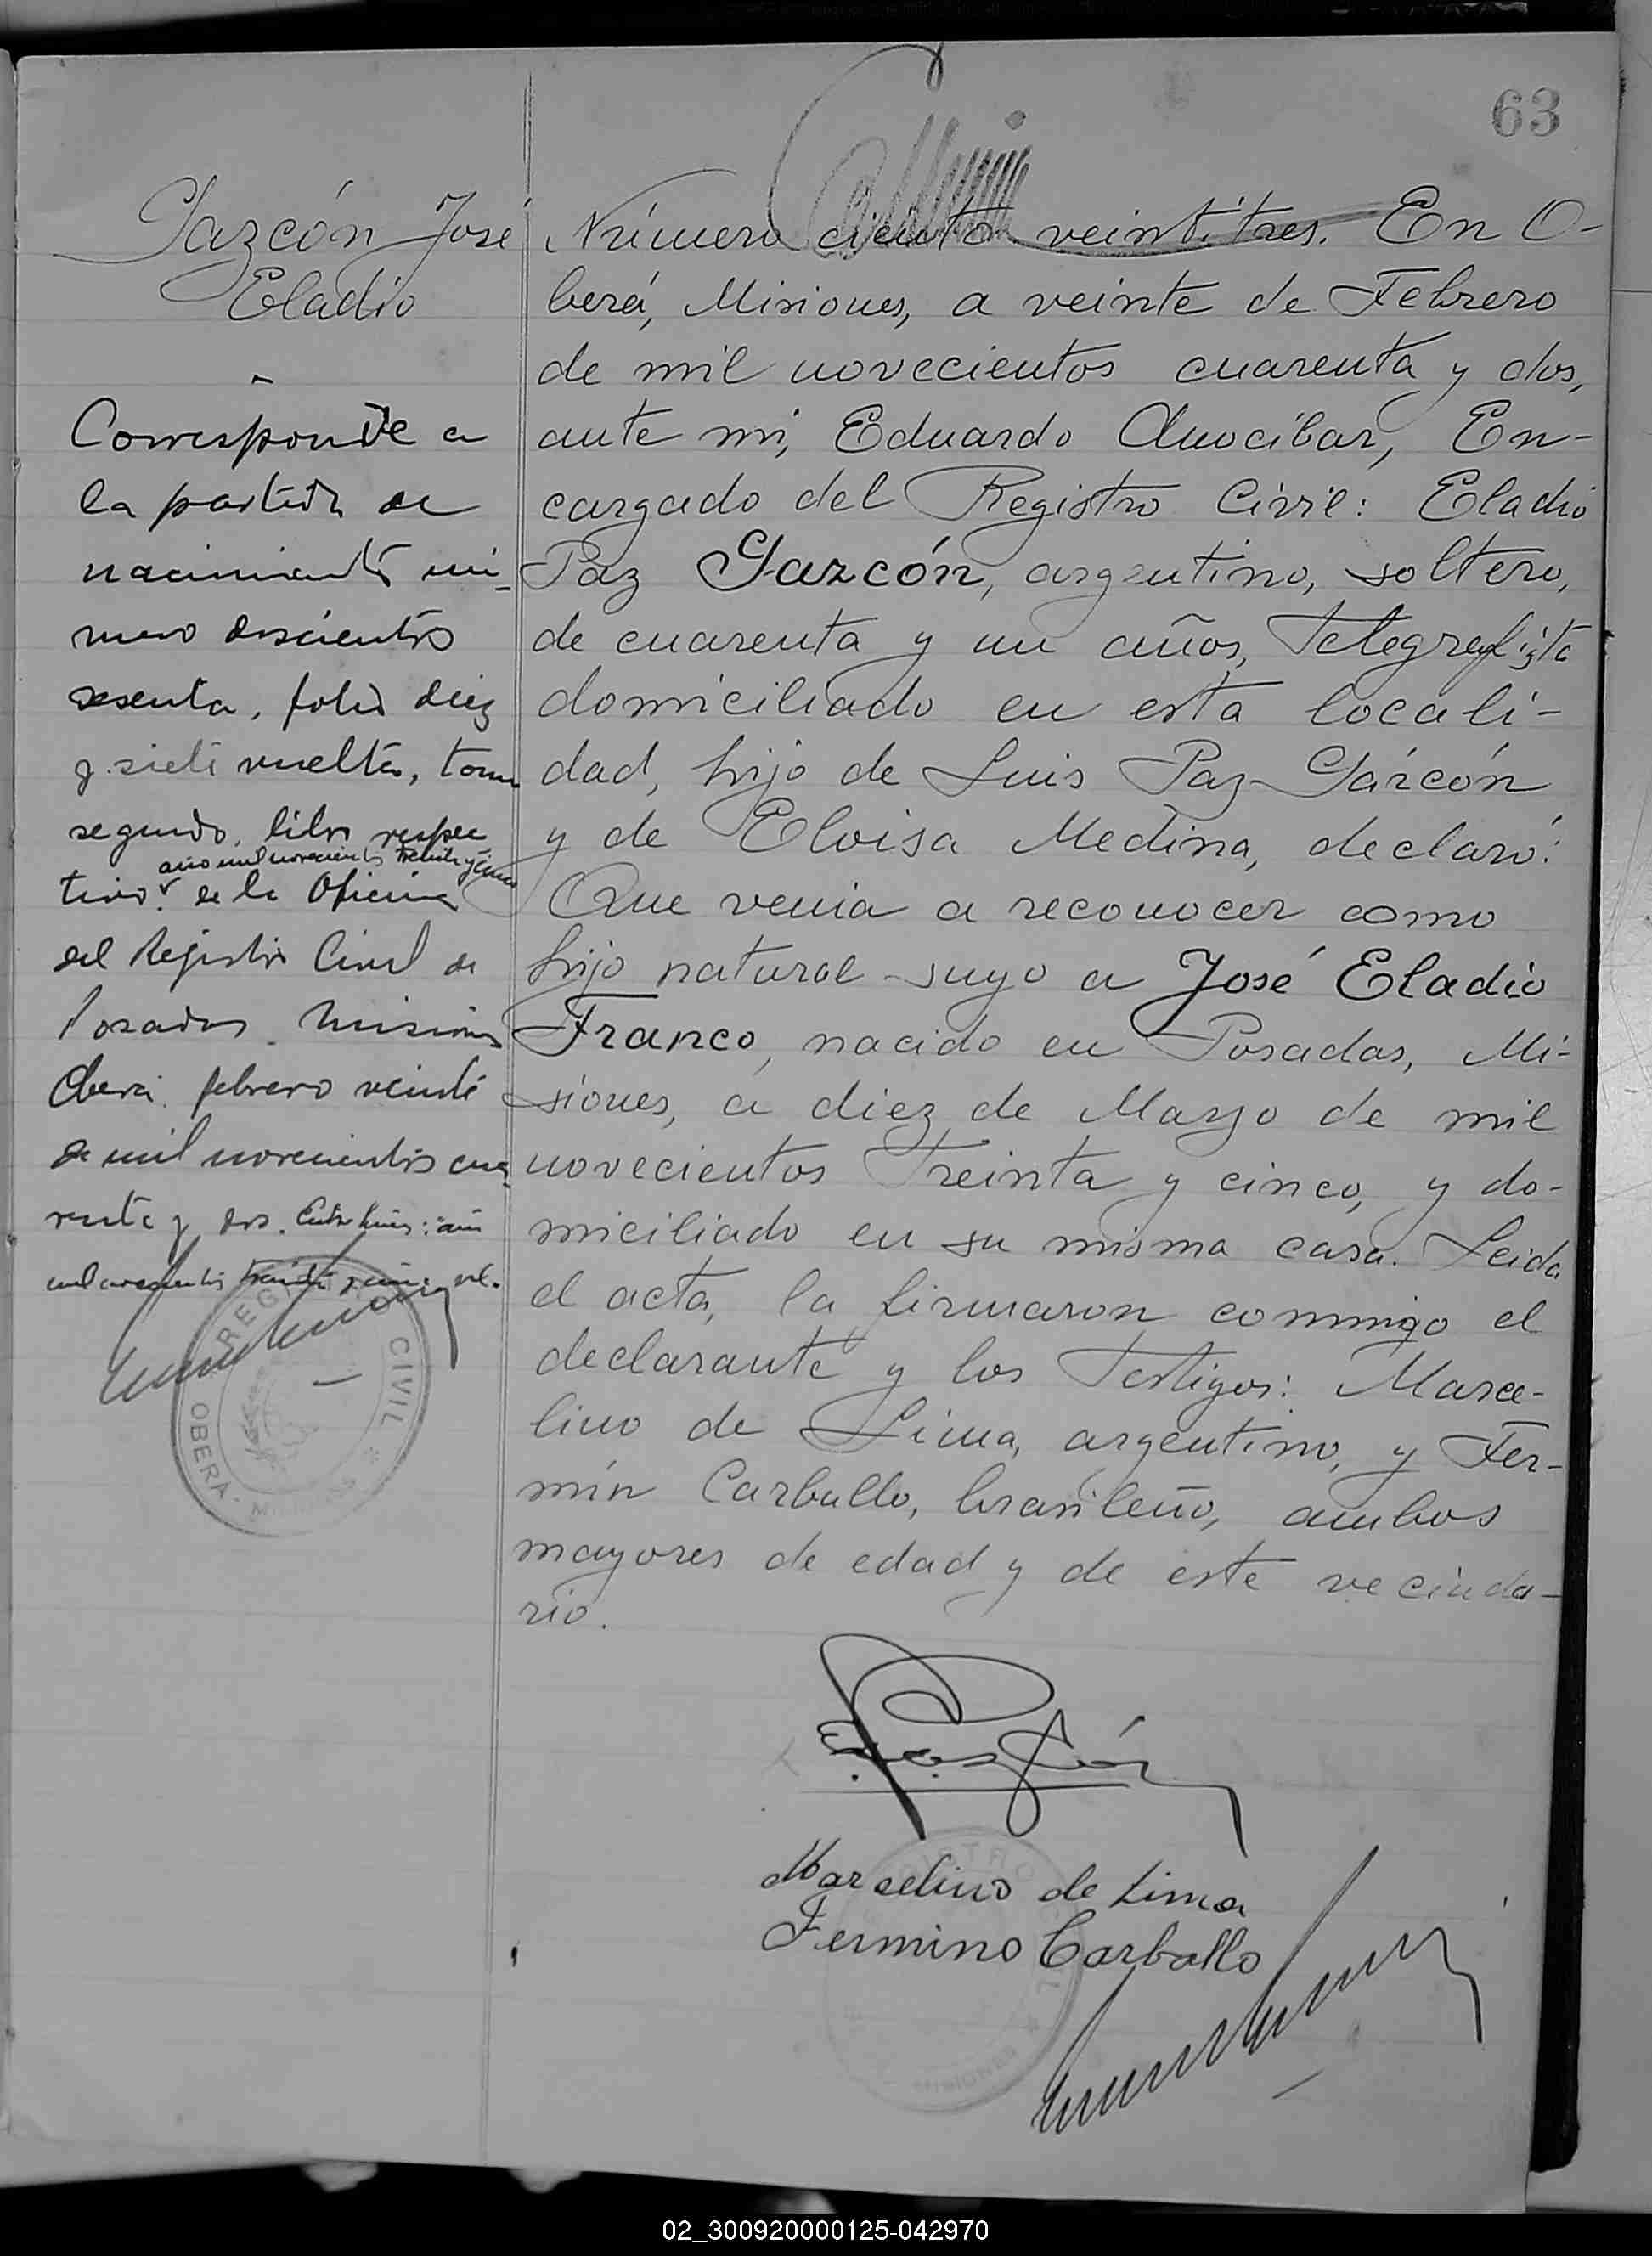 63
Gazcón José
Eladio
Corresponde a
la partida de
nacimiento nú-
mero doscientos
sesenta, folio diez
y siete vuelto, tomo
segundo, libro respec
año mil novecientos treinta y cinco
tivo de la Oficina
del Registro Civil de
Posadas. Misiones
Oberá. febrero veinte
de mil novecientos cua
renta y dos. Entre lineas: año
mil novecientos treinta y cinco vale.
REGISTRO CIVIL
OBERÁ - MISIONES
Número ciento veintitres. En O-
berá, Misiones, a veinte de Febrero
de mil novecientos cuarenta y dos,
ante mi, Eduardo Anocibar, En-
cargado del Registro Civil: Eladio
Paz Gazcón, argentino, soltero,
de cuarenta y un años, Telegrafista
domiciliado en esta locali-
dad, hijo de Luis Paz Garcón
y de Eloisa Medina, declaró:
Que venia a reconocer como
hijo natural suyo a José Eladio
Franco, nacido en Posadas, Mi-
siones, a diez de Marzo de mil
novecientos Treinta y cinco, y do-
miciliado en su misma casa. Leida
el acta, la firmaron conmigo el
declarante y los Testigos: Marce-
lino de Lima, argentino, y Fer-
mín Carballo, brasileño, ambos
mayores de edad y de este vecinda-
rio.
Marcelino de Lima
Fermino Carballo
REGISTRO CIVIL
MISIONES
02_300920000125-042970